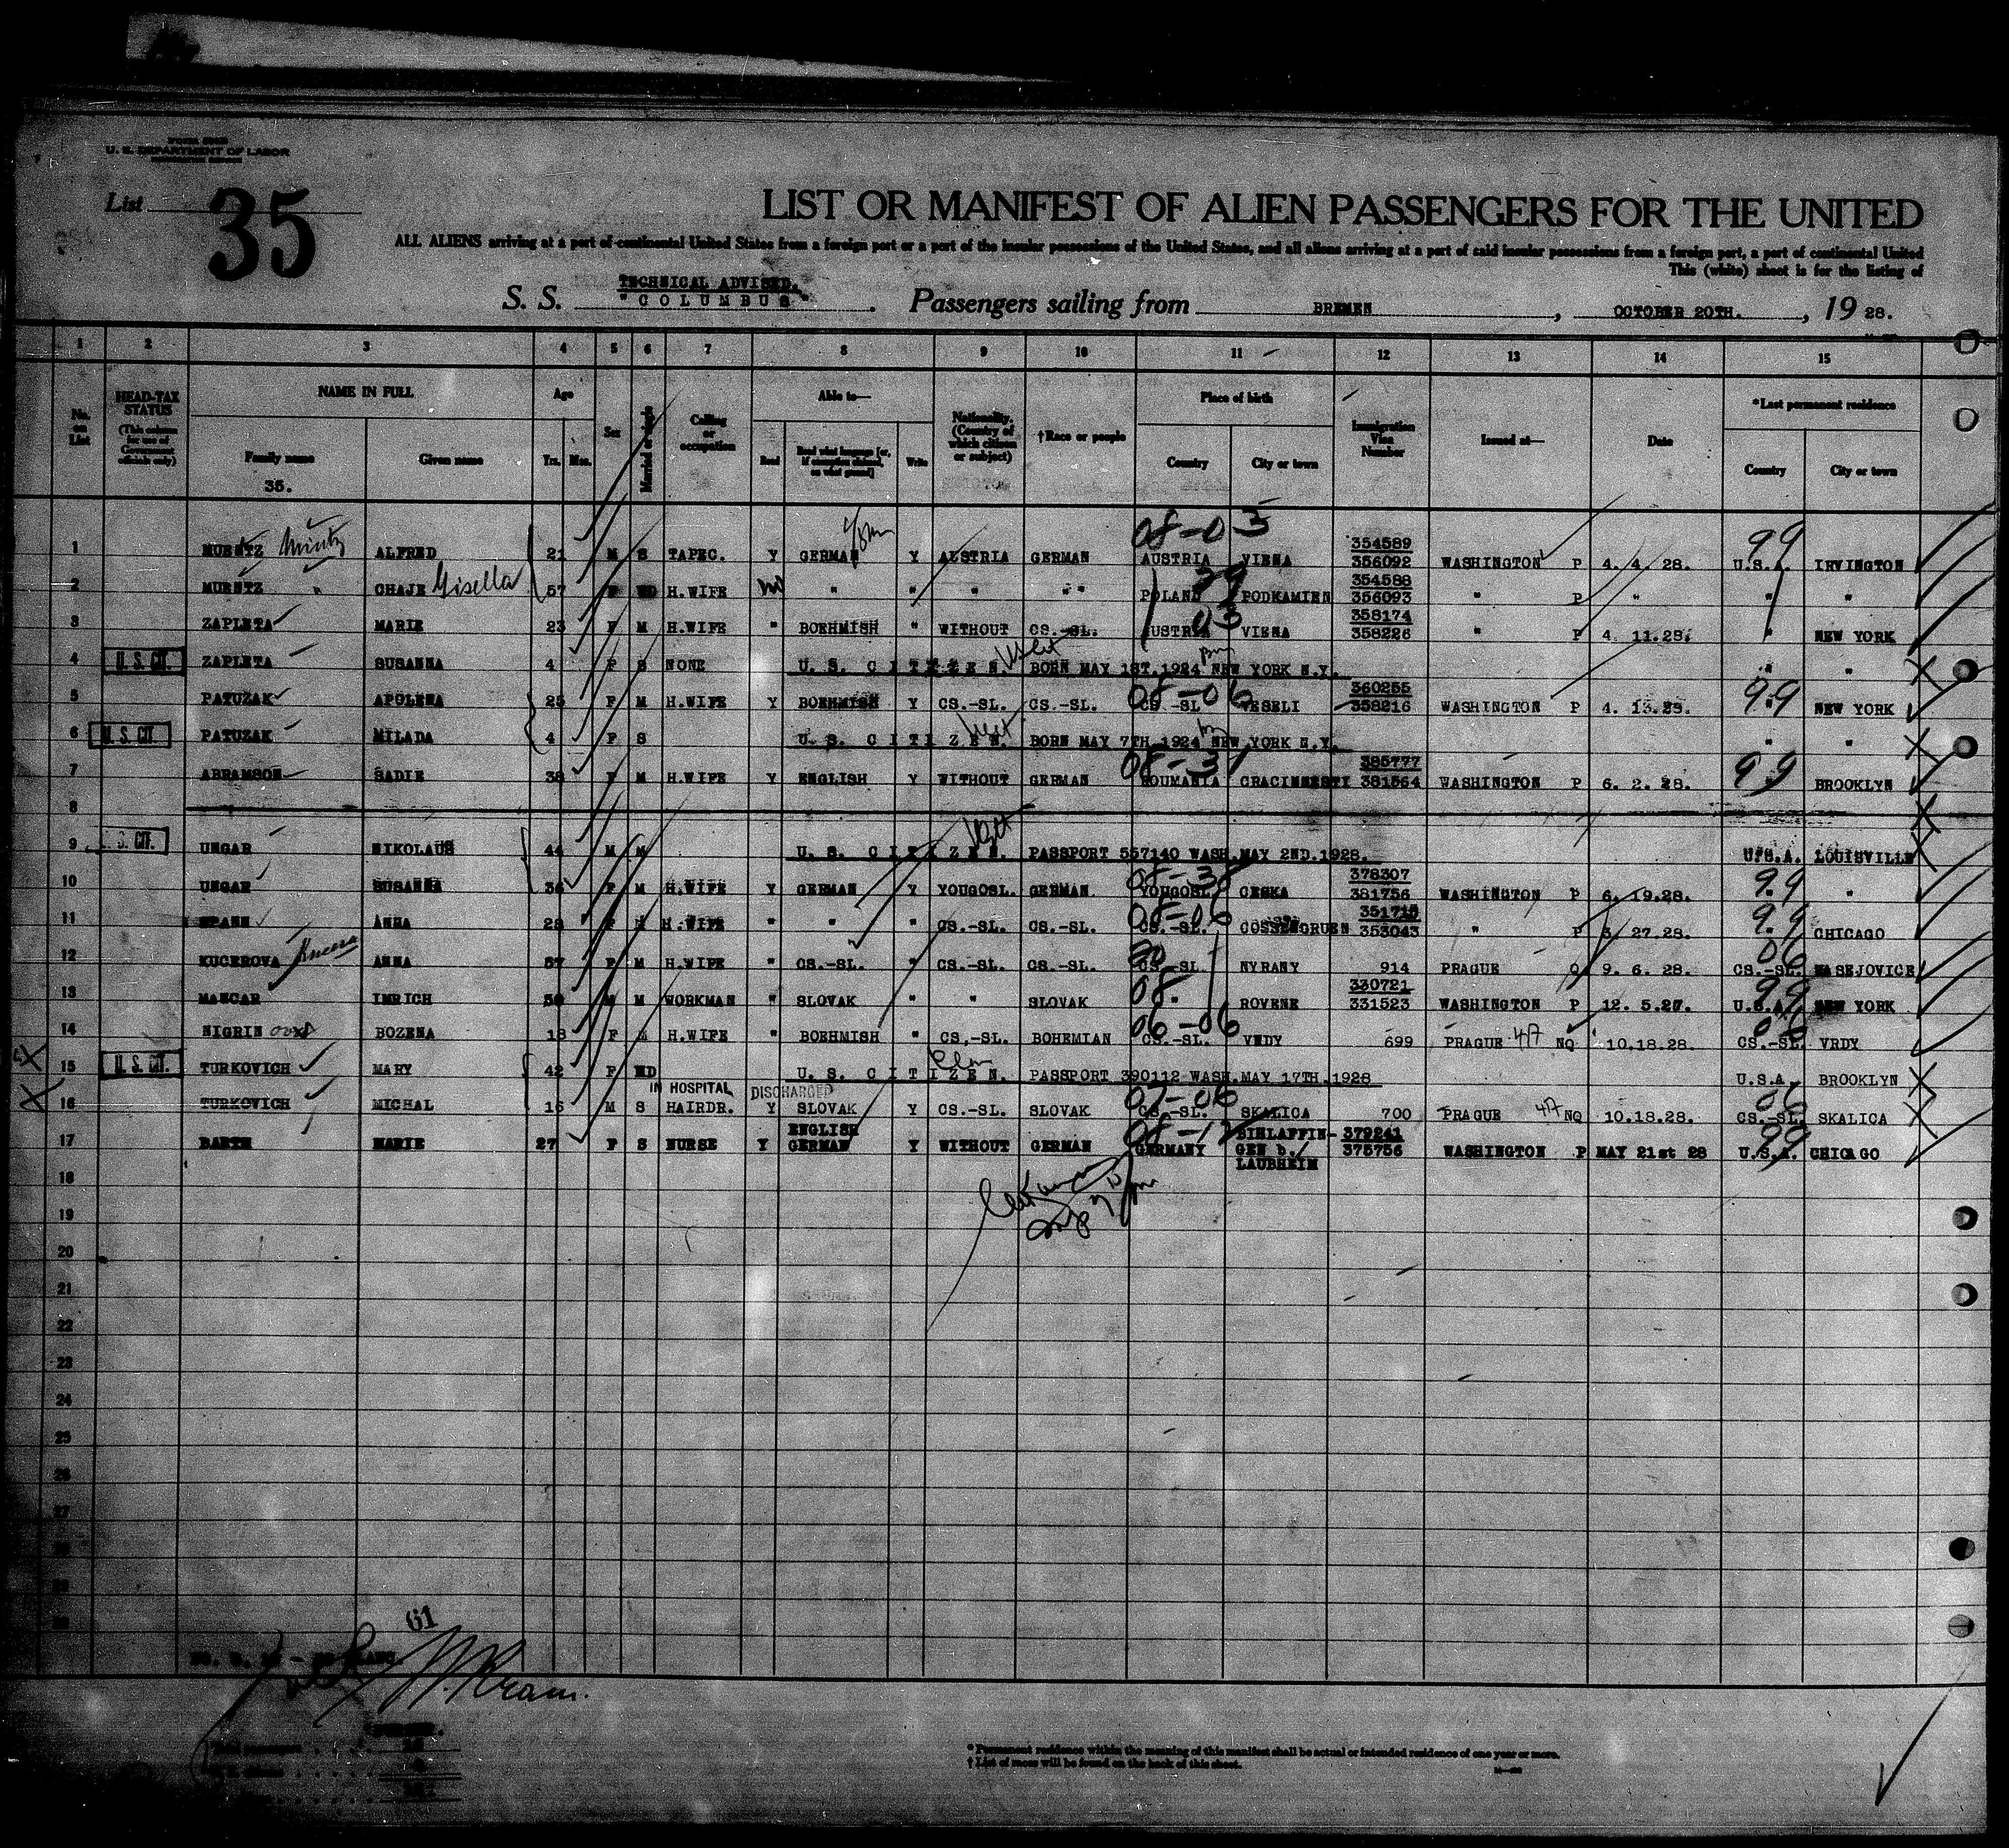 U. S. DEPARTMENT OF LABOR
List 35
LIST OR MANIFEST OF ALIEN PASSENGERS FOR THE UNITED
ALL ALIENS arriving at a port of continental United States from a foreign port or a port of the insular possessions of the United States, and all aliens arriving at a port of said insular possessions from a foreign port, a port of continental United
This (white) sheet is for the listing of
TECHNICAL ADVISED.
S. S. "COLUMBUS". Passengers sailing from BREMEN, OCTOBER 20TH., 19 28.
1 2 3 4 5 6 7 8 9 10 11 12 13 14 15
No. on List
HEAD-TAX STATUS (This column for use of Government officials only)
NAME IN FULL
Family name
35.
Given name
Age
Yrs. Mos.
Sex
Married or single
Calling or occupation
Able to—
Read
Read what language [or, if exemption claimed, on what ground]
Write
Nationality. (Country of which citizen or subject)
†Race or people
Place of birth
Country
City or town
Immigration Visa Number
Issued at—
Date
*Last permanent residence
Country
City or town
08-03 354589 99
1 MUENTZ Mintz ALFRED 21 M S TAPEC. Y GERMAN Y AUSTRIA GERMAN AUSTRIA VIENA 356092 WASHINGTON P 4. 4. 28. U.S.A. IRVINGTON
29 354588
2 MUENTZ " CHAJE Gisella 57 F WD H.WIFE no " " " " " POLAND PODKAMIEN 356093 " P " " "
03 358174
3 ZAPLETA MARIE 23 F M H.WIFE " BOEHMISH " WITHOUT CS.-SL. AUSTRIA VIENA 358226 " P 4 11.28. " NEW YORK
4 U. S. CIT. ZAPLETA SUSANNA 4 F S NONE U. S. CITIZEN. BORN MAY 1ST.1924 NEW YORK N.Y. " "
08-06 360255 99
5 PATUZAK APOLENA 25 F M H.WIFE Y BOEHMISH Y CS.-SL. CS.-SL. CS.-SL VESELI 358216 WASHINGTON P 4. 13.28. NEW YORK
6 U. S. CIT. PATUZAK MILADA 4 F S U. S. CITIZEN. BORN MAY 7TH.1924 NEW YORK N.Y. " "
08-31 385777 99
7 ABRAMSON SADIE 38 F M H.WIFE Y ENGLISH Y WITHOUT GERMAN ROUMANIA CRACINNESTI 381564 WASHINGTON P 6. 2. 28. BROOKLYN
8
9 S. CIT. UNGAR NIKOLAUS 44 M M U. S. CITIZEN. PASSPORT 557140 WASH.MAY 2ND.1928. U.S.A. LOUISVILLE
08-38 378307 99
10 UNGAR SUSANNA 36 F M H.WIFE Y GERMAN Y YOUGOSL. GERMAN YOUGOSL CESKA 381756 WASHINGTON P 6. 19.28. "
08-06 351715 99
11 SPANN ANNA 28 F M H.WIFE " " " CS.-SL. CS.-SL. CS.-SL. COSSENGRUEN 353043 " P 3 27.28. CHICAGO
06
12 KUCEROVA Kucera ANNA 57 F M H.WIFE " CS.-SL. " CS.-SL. CS.-SL. CS.-SL NYRANY 914 PRAGUE Q 9. 6. 28. CS.-SL. MASEJOVICE
08 330721 99
13 MANCAR IMRICH 50 M M WORKMAN " SLOVAK " " SLOVAK ROVENE 331523 WASHINGTON P 12. 5.27. U.S.A. NEW YORK
06-06 06
14 NIGRIN BOZENA 18 F M H.WIFE " BOEHMISH " CS.-SL. BOHEMIAN CS.-SL. VRDY 699 PRAGUE NQ 10.18.28. CS.-SL VRDY
15 U. S. CIT. TURKOVICH MARY 42 F WD U. S. CITIZEN. PASSPORT 390112 WASH.MAY 17TH.1928 U.S.A. BROOKLYN
IN HOSPITAL DISCHARGED 07-06 06
16 TURKOVICH MICHAL 16 M S HAIRDR. Y SLOVAK Y CS.-SL. SLOVAK CS.-SL. SKALICA 700 PRAGUE NQ 10.18.28. CS.-SL. SKALICA
ENGLISH 08-12 BIHLAFFIN- 379241 99
17 BARTH MARIE 27 F S NURSE Y GERMAN Y WITHOUT GERMAN GERMANY GEN b./ 375756 WASHINGTON P MAY 21st 28 U.S.A. CHICAGO
LAUBHEIM
18
19
20
21
22
23
24
25
26
27
61
* Permanent residence within the meaning of this manifest shall be actual or intended residence of one year or more.
† List of races will be found on the back of this sheet.